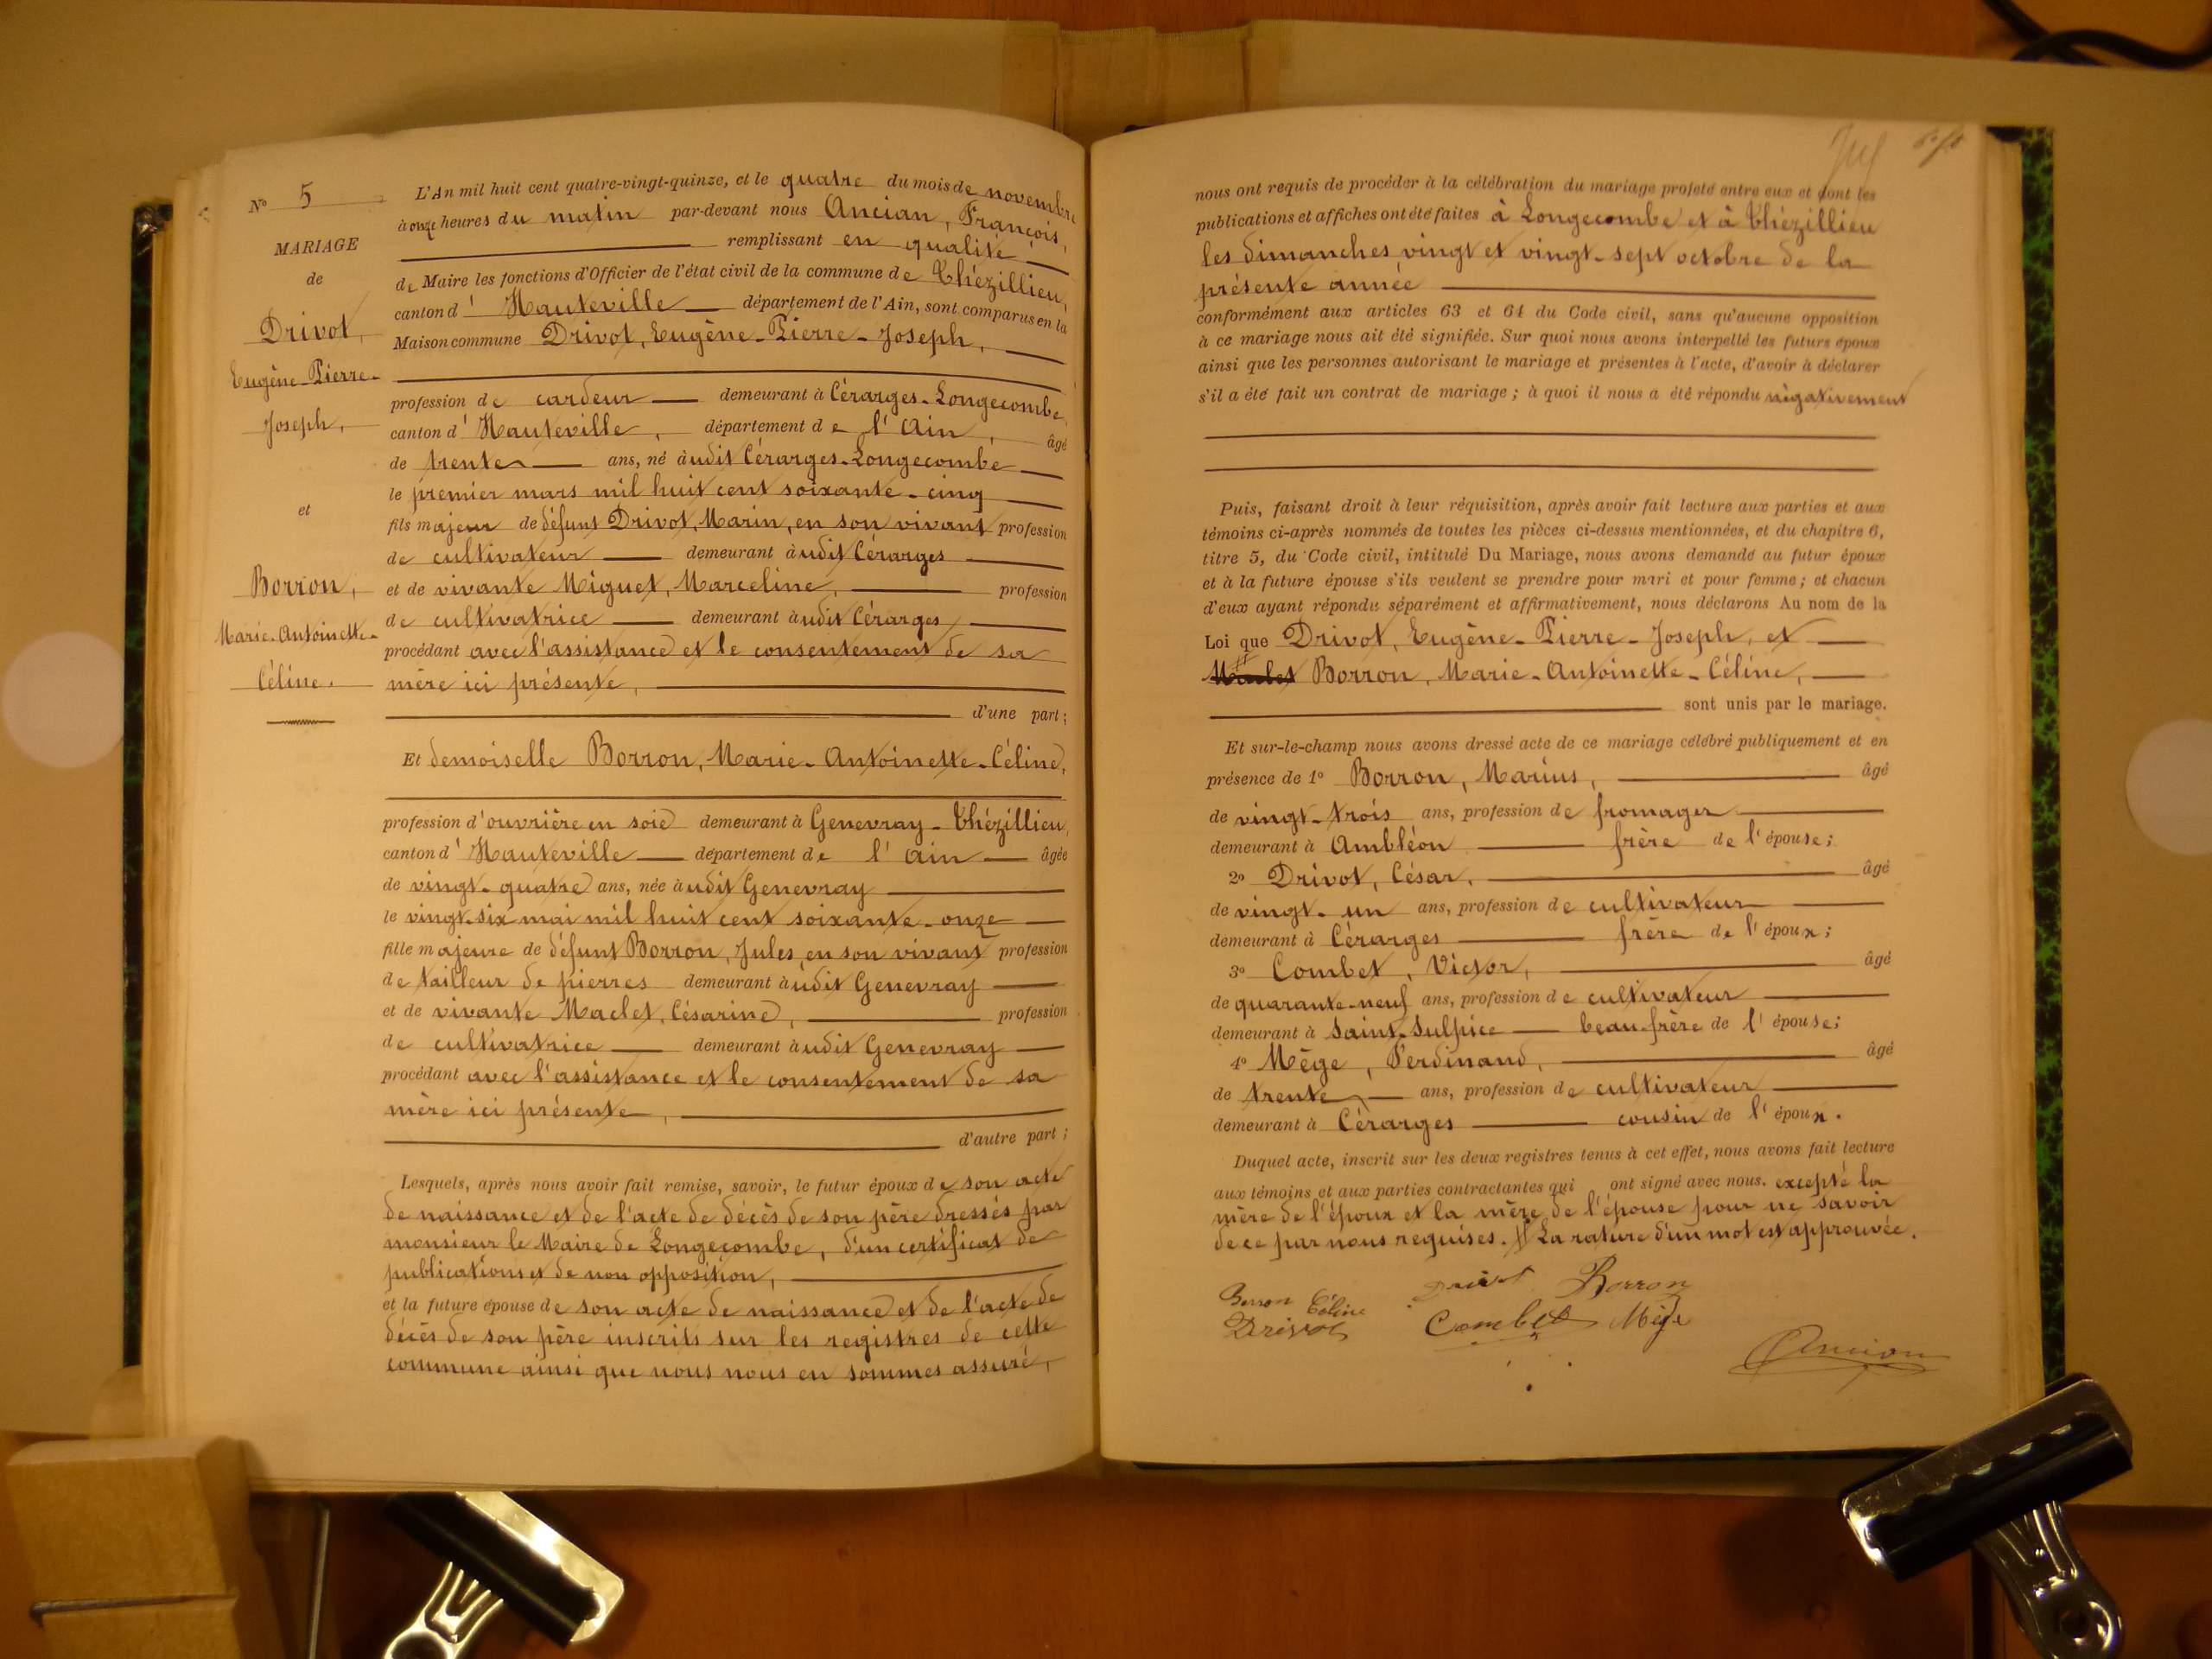 N° 5
MARIAGE
de
Drivot,
Eugène-Pierre-
Joseph,
et
Borron,
Marie-Antoinette-
Céline.
L'An mil huit cent quatre-vingt-quinze, et le quatre du mois de novembre
à onze heures du matin par-devant nous Ancian, François,
remplissant en qualité
de Maire les fonctions d'Officier de l'état civil de la commune de Thézillieu,
canton d'Hauteville département de l'Ain, sont comparus en la
Maison commune Drivot, Eugène-Pierre-Joseph,
profession de cardeur demeurant à Cérarges-Longecombe,
canton d'Hauteville, département de l'Ain, âgé
de trente ans, né àudit Cérarges-Longecombe
le premier mars mil huit cent soixante-cinq
fils majeur de défunt Drivot, Marin, en son vivant profession
de cultivateur demeurant àudit Cérarges
et de vivante Miguet, Marceline, profession
de cultivatrice demeurant àudit Cérarges,
procédant avec l'assistance et le consentement de sa
mère ici présente,
d'une part;
Et demoiselle Borron, Marie-Antoinette-Céline,
profession d'ouvrière en soie demeurant à Genevray-Thézillieu,
canton d'Hauteville département de l'Ain âgée
de vingt-quatre ans, née àudit Genevray
le vingt-six mai mil huit cent soixante-onze
fille majeure de défunt Borron, Jules, en son vivant profession
de tailleur de pierres demeurant àudit Genevray
et de vivante Maclet, Césarine, profession
de cultivatrice demeurant àudit Genevray
procédant avec l'assistance et le consentement de sa
mère ici présente,
d'autre part;
Lesquels, après nous avoir fait remise, savoir, le futur époux de son acte
de naissance et de l'acte de décès de son père dressés par
monsieur le Maire de Longecombe, d'un certificat de
publications et de non opposition,
et la future épouse de son acte de naissance et de l'acte de
décès de son père inscrits sur les registres de cette
commune ainsi que nous nous en sommes assuré,
nous ont requis de procéder à la célébration du mariage projeté entre eux et dont les
publications et affiches ont été faites à Longecombe et à Thézillieu
les dimanches vingt et vingt-sept octobre de la
présente année
conformément aux articles 63 et 64 du Code civil, sans qu'aucune opposition
à ce mariage nous ait été signifiée. Sur quoi nous avons interpellé les futurs époux
ainsi que les personnes autorisant le mariage et présentes à l'acte, d'avoir à déclarer
s'il a été fait un contrat de mariage; à quoi il nous a été répondu négativement
Puis, faisant droit à leur réquisition, après avoir fait lecture aux parties et aux
témoins ci-après nommés de toutes les pièces ci-dessus mentionnées, et du chapitre 6,
titre 5, du Code civil, intitulé Du Mariage, nous avons demandé au futur époux
et à la future épouse s'ils veulent se prendre pour mari et pour femme; et chacun
d'eux ayant répondu séparément et affirmativement, nous déclarons Au nom de la
Loi que Drivot, Eugène-Pierre-Joseph, et
Maclet Borron, Marie-Antoinette-Céline,
sont unis par le mariage.
Et sur-le-champ nous avons dressé acte de ce mariage célébré publiquement et en
présence de 1° Borron, Marius, âgé
de vingt-trois ans, profession de fromager
demeurant à Ambléon frère de l'épouse;
2° Drivot, César, âgé
de vingt-un ans, profession de cultivateur
demeurant à Cérarges frère de l'époux;
3° Combet, Victor, âgé
de quarante-neuf ans, profession de cultivateur
demeurant à Saint-Sulpice beau-frère de l'épouse;
4° Mège, Ferdinand, âgé
de trente ans, profession de cultivateur
demeurant à Cérarges cousin de l'époux.
Duquel acte, inscrit sur les deux registres tenus à cet effet, nous avons fait lecture
aux témoins et aux parties contractantes qui ont signé avec nous. excepté la
mère de l'époux et la mère de l'épouse pour ne savoir
de ce par nous requises. # La rature d'un mot est approuvée.
Borron Céline Drivot Borron
Drivot Combet Mège
Ancian